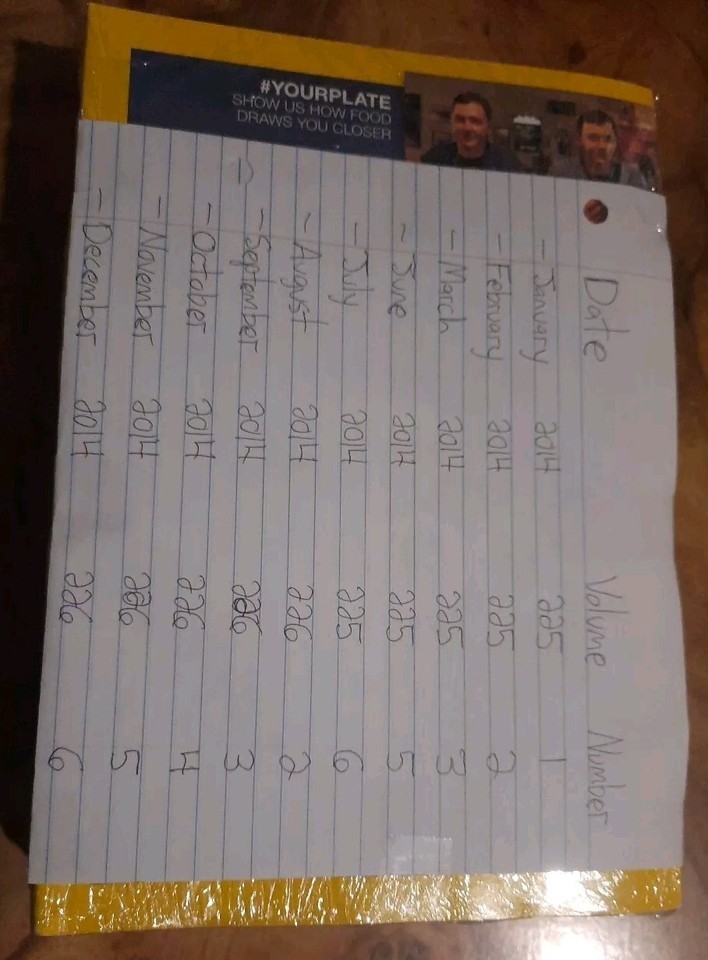 #YOURPLATE
SHOW US HOW FOOD
DRAWS YOU CLOSER
Date Volume Number
- January 2014 225 1
- February 2014 225 2
- March 2014 225 3
- June 2014 225 5
- July 2014 225 6
- August 2014 226 2
- September 2014 226 3
- October 2014 226 4
- November 2014 226 5
- December 2014 226 6